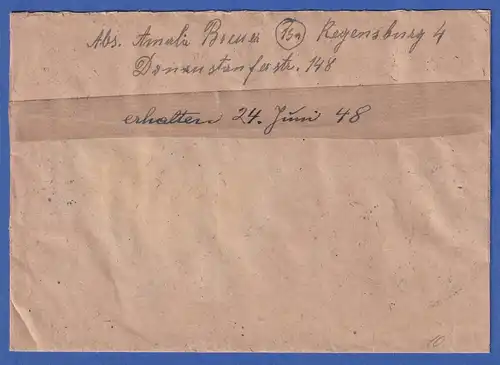 Abs. Amalie Breuer (13a) Regensburg 4
Donaustauferstr. 148
erhalten 24. Juni 48
10